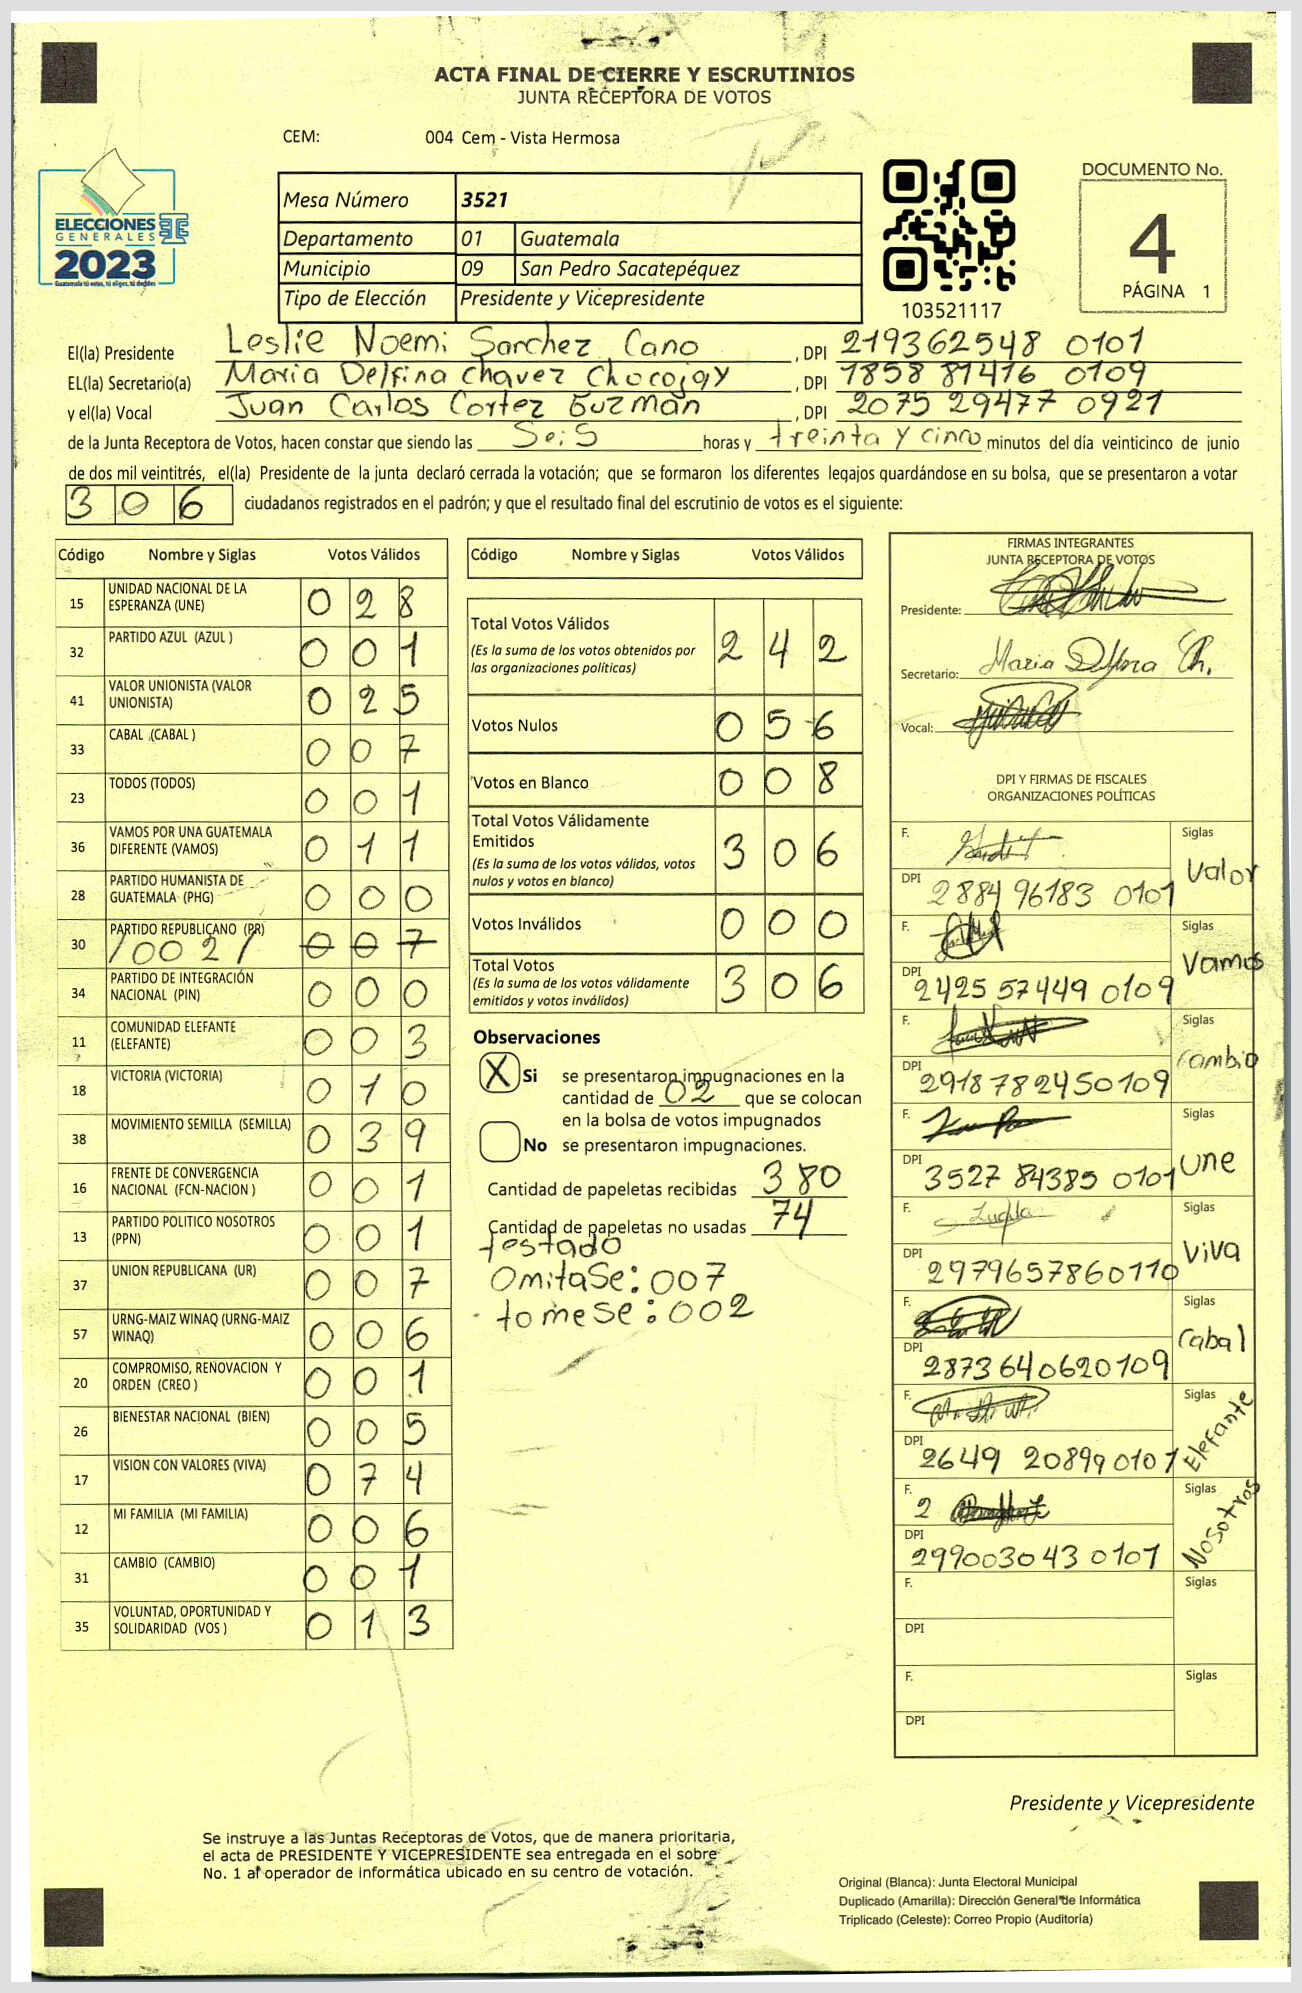 ACTA FINAL DE CIERRE Y ESCRUTINIOS
JUNTA RECEPTORA DE VOTOS
CEM: 004 Cem - Vista Hermosa
ELECCIONES
GENERALES
2023
Guatemala tú votas, tú eliges, tú decides
Mesa Número 3521
Departamento 01 Guatemala
Municipio 09 San Pedro Sacatepéquez
Tipo de Elección Presidente y Vicepresidente
103521117
DOCUMENTO No.
4
PÁGINA 1
El(la) Presidente Leslie Noemi Sarchez Cano , DPI 219362548 0101
EL(la) Secretario(a) Maria Delfina Chavez Chocojay , DPI 1858 81416 0109
y el(la) Vocal Juan Carlos Cortez Guzmán , DPI 2075 29477 0921
de la Junta Receptora de Votos, hacen constar que siendo las Seis horas y treinta y cinco minutos del día veinticinco de junio
de dos mil veintitrés, el(la) Presidente de la junta declaró cerrada la votación; que se formaron los diferentes legajos quardándose en su bolsa, que se presentaron a votar
306 ciudadanos registrados en el padrón; y que el resultado final del escrutinio de votos es el siguiente:
Código Nombre y Siglas Votos Válidos
15 UNIDAD NACIONAL DE LA ESPERANZA (UNE) 0 2 8
32 PARTIDO AZUL (AZUL ) 0 0 1
41 VALOR UNIONISTA (VALOR UNIONISTA) 0 2 5
33 CABAL (CABAL ) 0 0 7
23 TODOS (TODOS) 0 0 1
36 VAMOS POR UNA GUATEMALA DIFERENTE (VAMOS) 0 1 1
28 PARTIDO HUMANISTA DE GUATEMALA (PHG) 0 0 0
30 PARTIDO REPUBLICANO (PR) /002/ 0 0 7
34 PARTIDO DE INTEGRACIÓN NACIONAL (PIN) 0 0 0
11 COMUNIDAD ELEFANTE (ELEFANTE) 0 0 3
18 VICTORIA (VICTORIA) 0 1 0
38 MOVIMIENTO SEMILLA (SEMILLA) 0 3 9
16 FRENTE DE CONVERGENCIA NACIONAL (FCN-NACION ) 0 0 1
13 PARTIDO POLITICO NOSOTROS (PPN) 0 0 1
37 UNION REPUBLICANA (UR) 0 0 7
57 URNG-MAIZ WINAQ (URNG-MAIZ WINAQ) 0 0 6
20 COMPROMISO, RENOVACION Y ORDEN (CREO ) 0 0 1
26 BIENESTAR NACIONAL (BIEN) 0 0 5
17 VISION CON VALORES (VIVA) 0 7 4
12 MI FAMILIA (MI FAMILIA) 0 0 6
31 CAMBIO (CAMBIO) 0 0 1
35 VOLUNTAD, OPORTUNIDAD Y SOLIDARIDAD (VOS ) 0 1 3
Código Nombre y Siglas Votos Válidos
Total Votos Válidos 2 4 2
(Es la suma de los votos obtenidos por
las organizaciones políticas)
Votos Nulos 0 5 6
Votos en Blanco 0 0 8
Total Votos Válidamente
Emitidos 3 0 6
(Es la suma de los votos válidos, votos
nulos y votos en blanco)
Votos Inválidos 0 0 0
Total Votos 3 0 6
(Es la suma de los votos válidamente
emitidos y votos inválidos)
Observaciones
X Si se presentaron impugnaciones en la
cantidad de 02 que se colocan
en la bolsa de votos impugnados
No se presentaron impugnaciones.
Cantidad de papeletas recibidas 380
Cantidad de papeletas no usadas 74
testado
Omitase: 007
tomese: 002
FIRMAS INTEGRANTES
JUNTA RECEPTORA DE VOTOS
Presidente:
Secretario: Maria Delfina Ch.
Vocal:
DPI Y FIRMAS DE FISCALES
ORGANIZACIONES POLÍTICAS
F. Siglas Valor
DPI 2884 96183 0101
F. Siglas Vamos
DPI 2425 57449 0109
F. Siglas Cambio
DPI 2918 782450109
F. Siglas Une
DPI 3527 84385 0101
F. Siglas Viva
DPI 2979657860110
F. Siglas Cabal
DPI 2873640620109
F. Siglas Elefante
DPI 2649 208990101
F. 2 Siglas Nosotros
DPI 299003043 0101
F. Siglas
DPI
F. Siglas
DPI
Presidente y Vicepresidente
Se instruye a las Juntas Receptoras de Votos, que de manera prioritaria,
el acta de PRESIDENTE Y VICEPRESIDENTE sea entregada en el sobre
No. 1 al operador de informática ubicado en su centro de votación.
Original (Blanca): Junta Electoral Municipal
Duplicado (Amarilla): Dirección General de Informática
Triplicado (Celeste): Correo Propio (Auditoría)